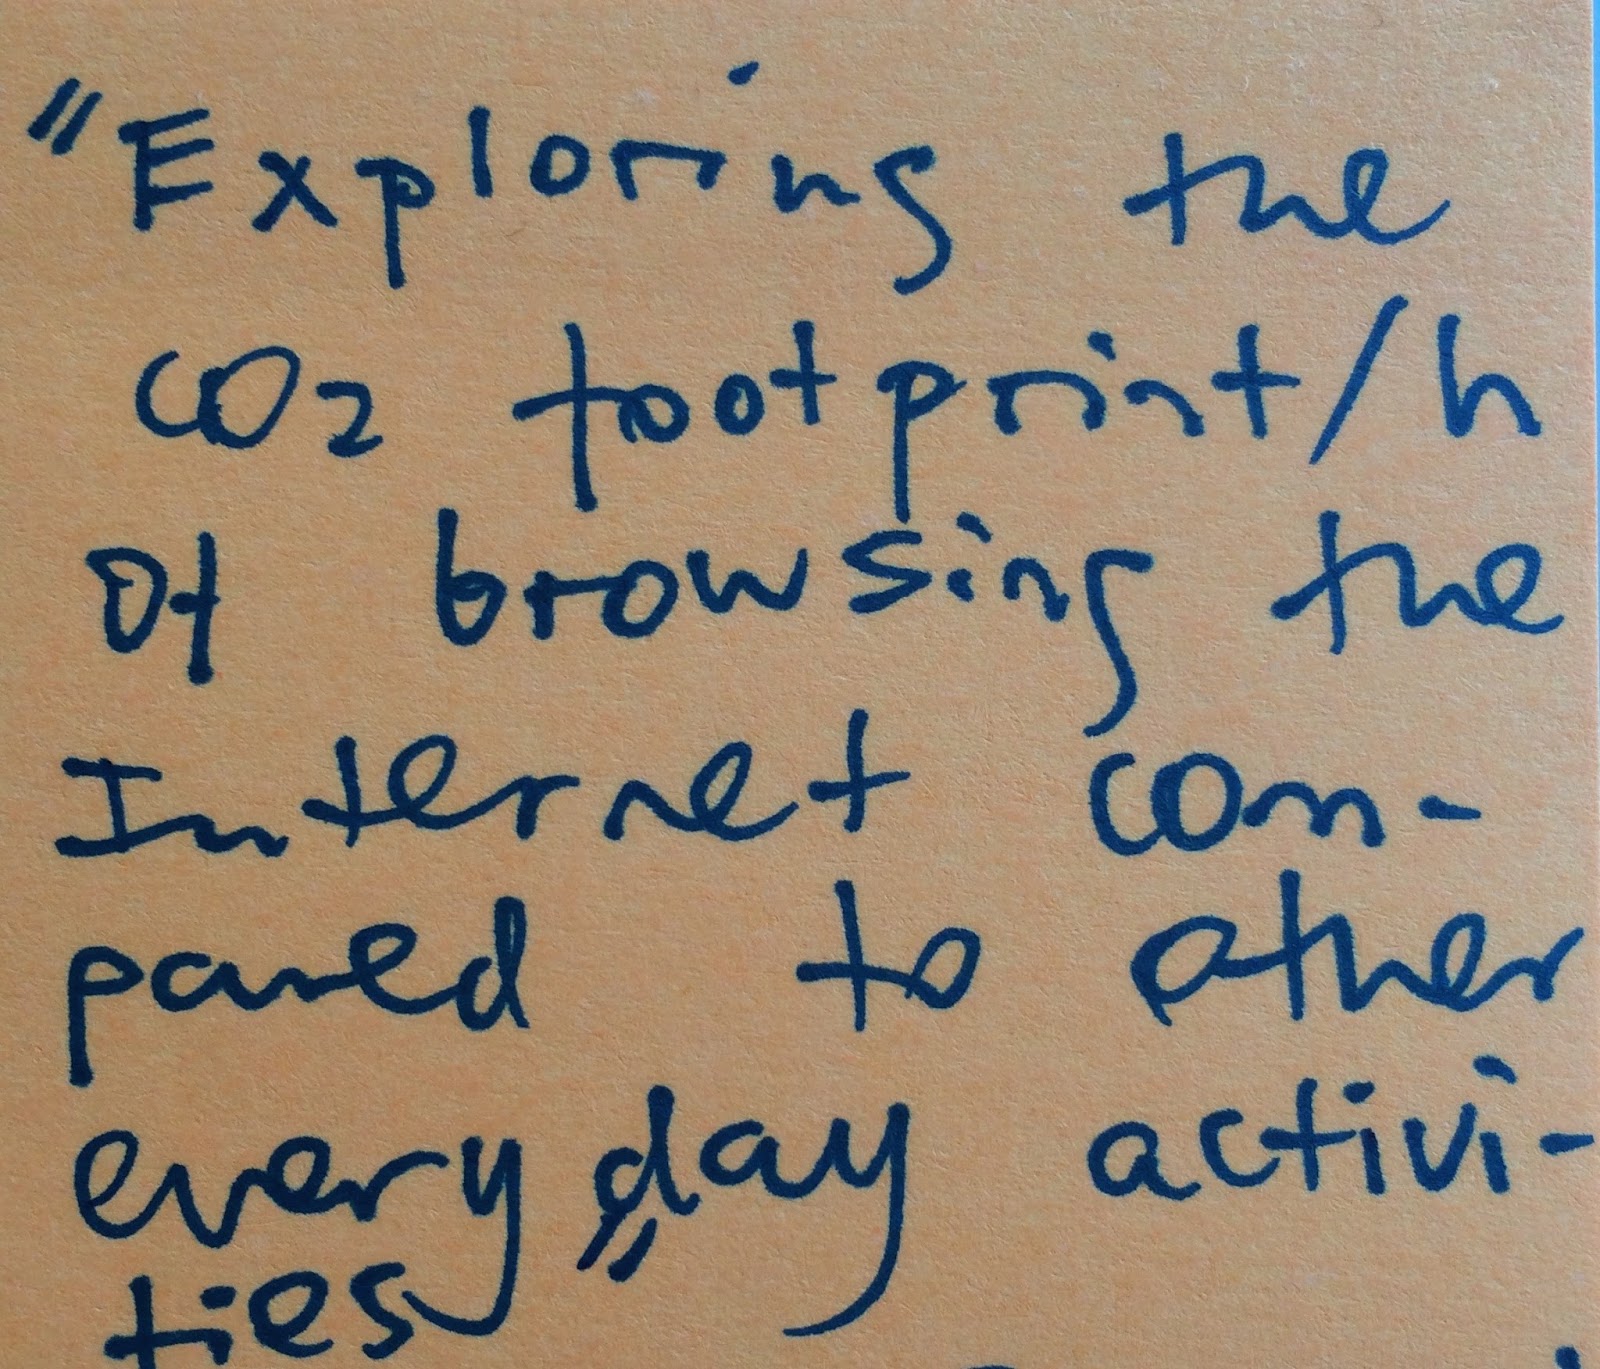 "Exploring the
CO2 footprint/h
of browsing the
Internet com-
pared to other
everyday activi-
ties"